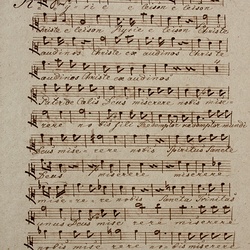 ri e e leison e leison
christe e leison Kyrie e leison Christe
audinos Christe ex audinos Christe
audinos Christe ex audinos
Pater de Caelis Deus miserere nobis mise-
rere nobis fili Redemptor mundi
Deus mise- rere nobis Spiritus Sancte
Deus miserere
miserere nobis Sancta Trinitas
unus Deus mise rere
nobis mise rere nobis